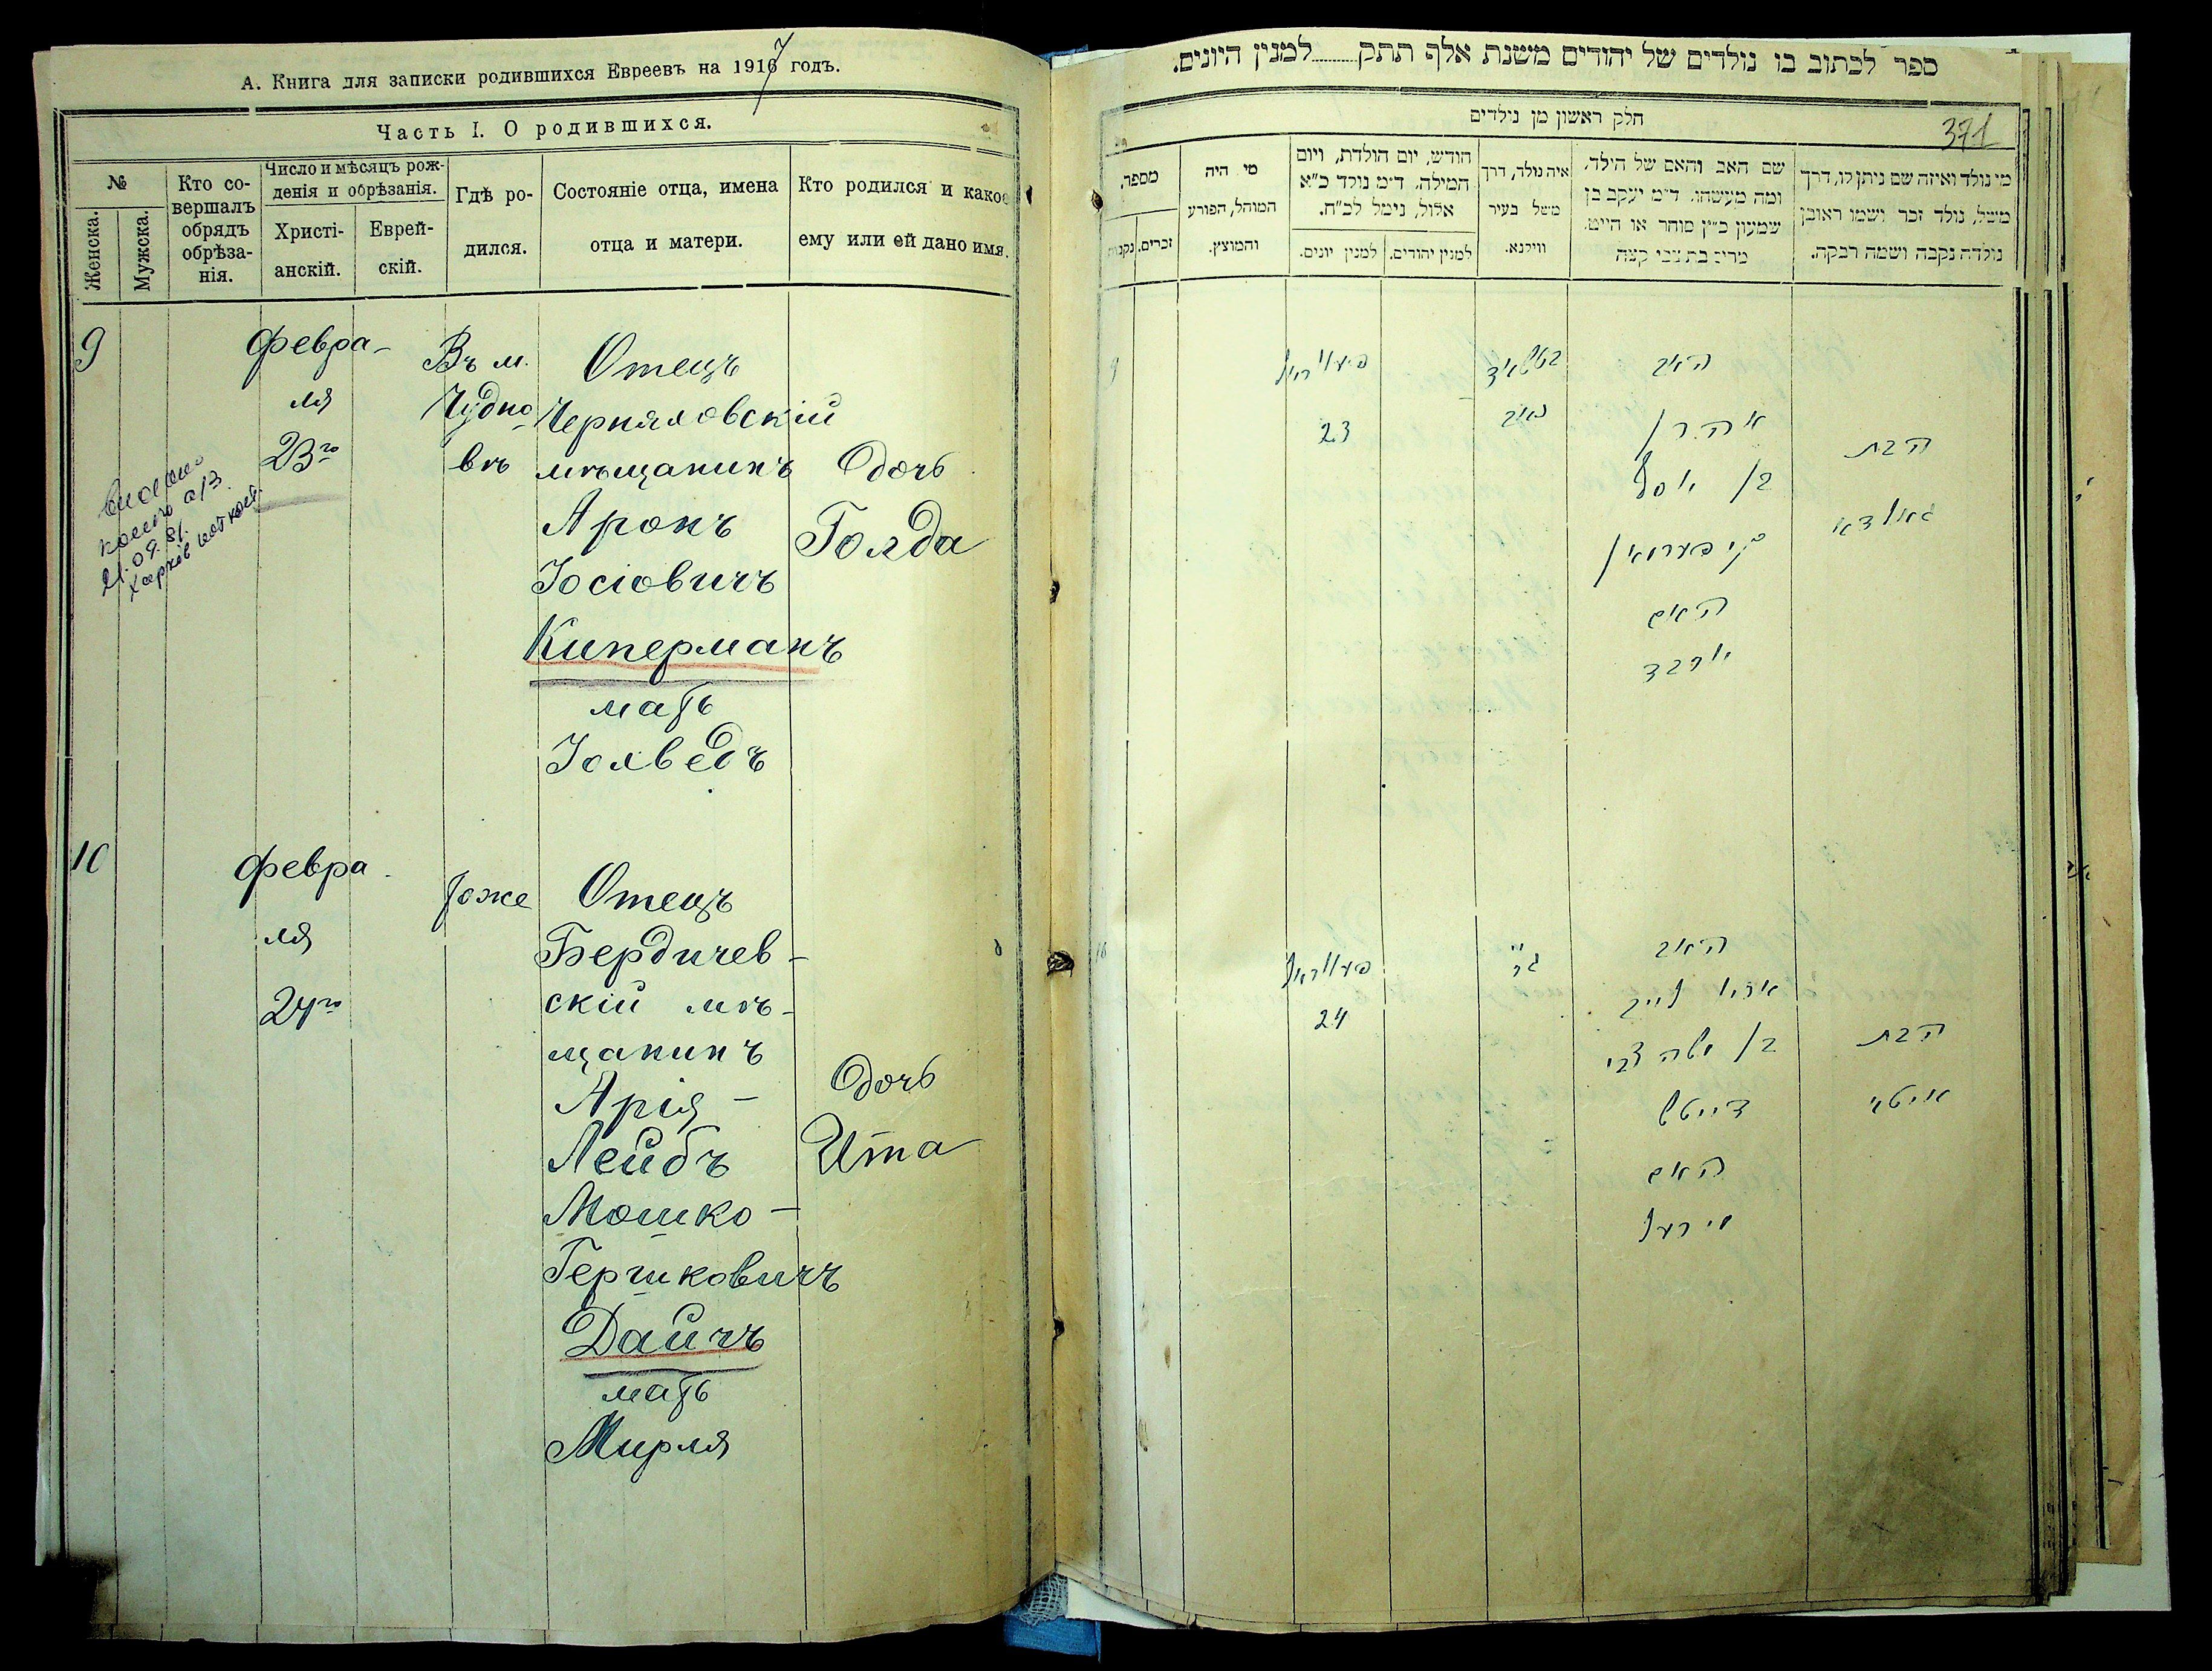 А. Книга для записки родившихся Евреевъ на 1917 годъ.
Часть I. О родившихся.
№
Женска.
Мужска.
Кто со-
вершалъ
обрядъ
обрѣза-
нія.
Число и мѣсяцъ рож-
денія и обрѣзанія.
Христі-
анскій.
Еврей-
скій.
Гдѣ ро-
дился.
Состояніе отца, имена
отца и матери.
Кто родился и какое
ему или ей дано имя.
9
Февра-
ля
23го
Въ м.
Чудно-
вѣ
Отецъ
Черняховскій
мѣщанинъ
Аронъ
Іосіовичъ
Киперманъ
мать
Іохведъ
Дочь
Голда
21.09.81.
10
Февра
ля
24го
Тоже
Отецъ
Бердичев-
скій мѣ-
щанинъ
Арія-
Лейбъ
Мошко-
Гершковичъ
Дайчъ
мать
Мирля
Дочь
Ита
ספר לכתוב בו נולדים של יהודים משנת אלף תתק למנין היונים.
371
חלק ראשון מן נילדים
מי נולד ואיזה שם ניתן לו, דרך
משל, נולד זכר ושמו ראובן
נולדה נקבה ושמה רבקה.
שם האב והאם של הילד,
ומה מעשהו. ד״מ יעקב בן
שמעון כ״ץ סוחר או חייט.
איה נולד, דרך
משל בעיר
ווילנא.
חודש, יום הולדת, ויום
המילה, ד״מ נולד כ״א
אלול, נימל לכ״ח.
למנין יהודים.
למנין יונים.
מי היה
המוהל, הפורע
והמוצץ.
מספר.
זכרים.
נקבות
9
23
האב
אהרן
בן יוסף
קיפערמאן
האם
יוכבד
הבת
גאלדא
10
24
האב
ארי' לייב
בן משה צבי
דייטש
האם
מירעל
הבת
איטא